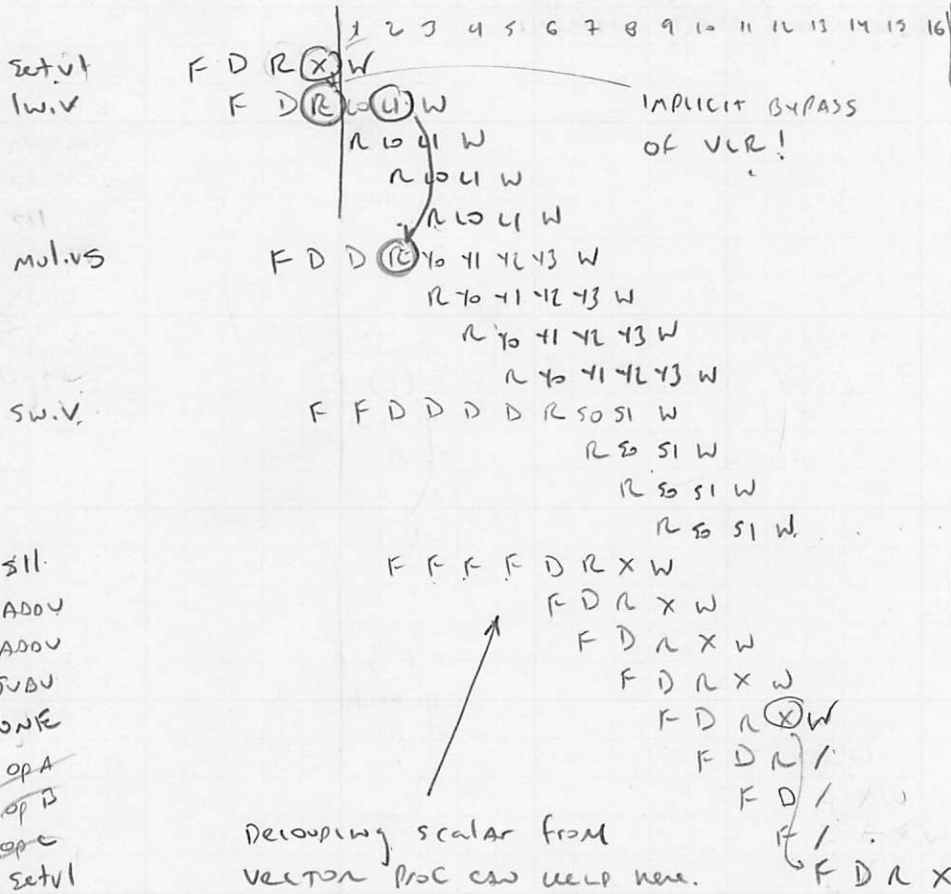 1 2 3 4 5 6 7 8 9 10 11 12 13 14 15 16
Setvl F D R X W
lw.v F D R L0 L1 W IMPLICIT BYPASS
R L0 L1 W OF VLR!
R L0 L1 W
R L0 L1 W
Mul.vs F D D R Y0 Y1 Y2 Y3 W
R Y0 Y1 Y2 Y3 W
R Y0 Y1 Y2 Y3 W
R Y0 Y1 Y2 Y3 W
Sw.v F F D D D D R S0 S1 W
R S0 S1 W
R S0 S1 W
R S0 S1 W
sll F F F F D R X W
ADDU F D R X W
ADDU F D R X W
SUBU F D R X W
BNE F D R X W
opA F D R /
op B F D /
opC Decoupling scalar from F /
Setvl VECTOR PROC CAN HELP HERE. F D R X